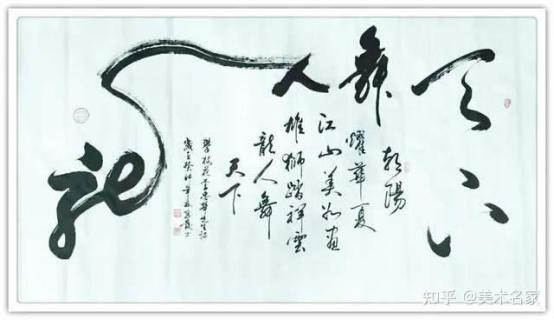 龍人舞天下
朝陽
耀華夏
江山美如畫
雄獅踏祥雲
龍人舞
天下
知乎 @美术名家